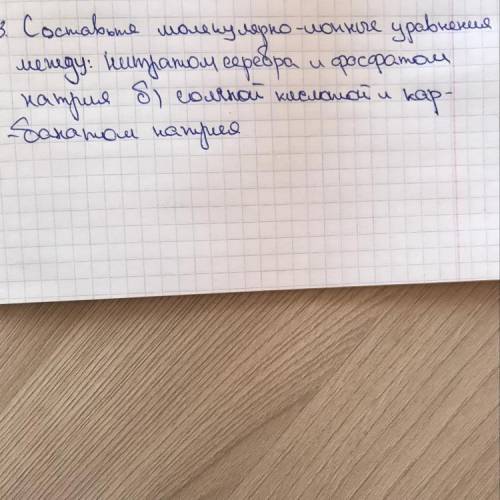 3. Составьте молекулярно-ионные уравнения
между: Нитратом серебра и фосфатом
натрия б) соляной кислотой и кар-
-банатом натрия